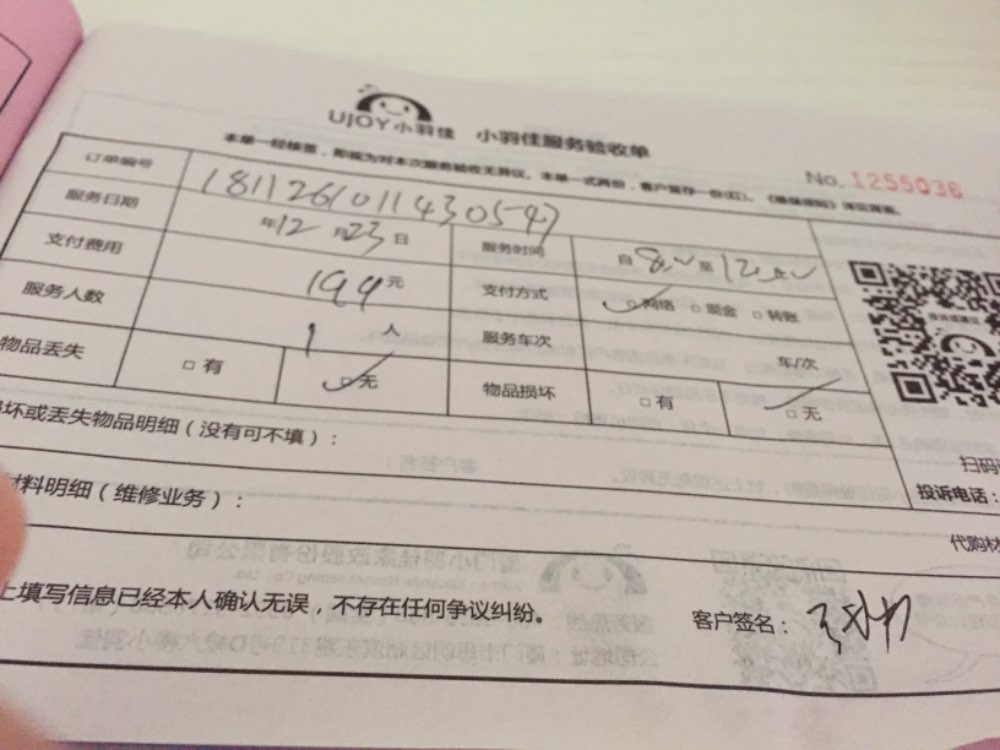 UJOY小羽佳 小羽佳服务验收单
本单一经核签，即视为对本次服务验收无异议。本单一式两份，客户留存一份(红)。
No. 1255036
订单编号 181126101143054
服务日期 年12月23日 服务时间 自8:00至12:00
支付费用 194元 支付方式 □网络 □现金 □转账
服务人数 1人 服务车次 车/次
物品丢失 □有 □无 物品损坏 □有 □无
坏或丢失物品明细（没有可不填）：
扫码
材料明细（维修业务）：
投诉电话：
代购材
上填写信息已经本人确认无误，不存在任何争议纠纷。
客户签名：